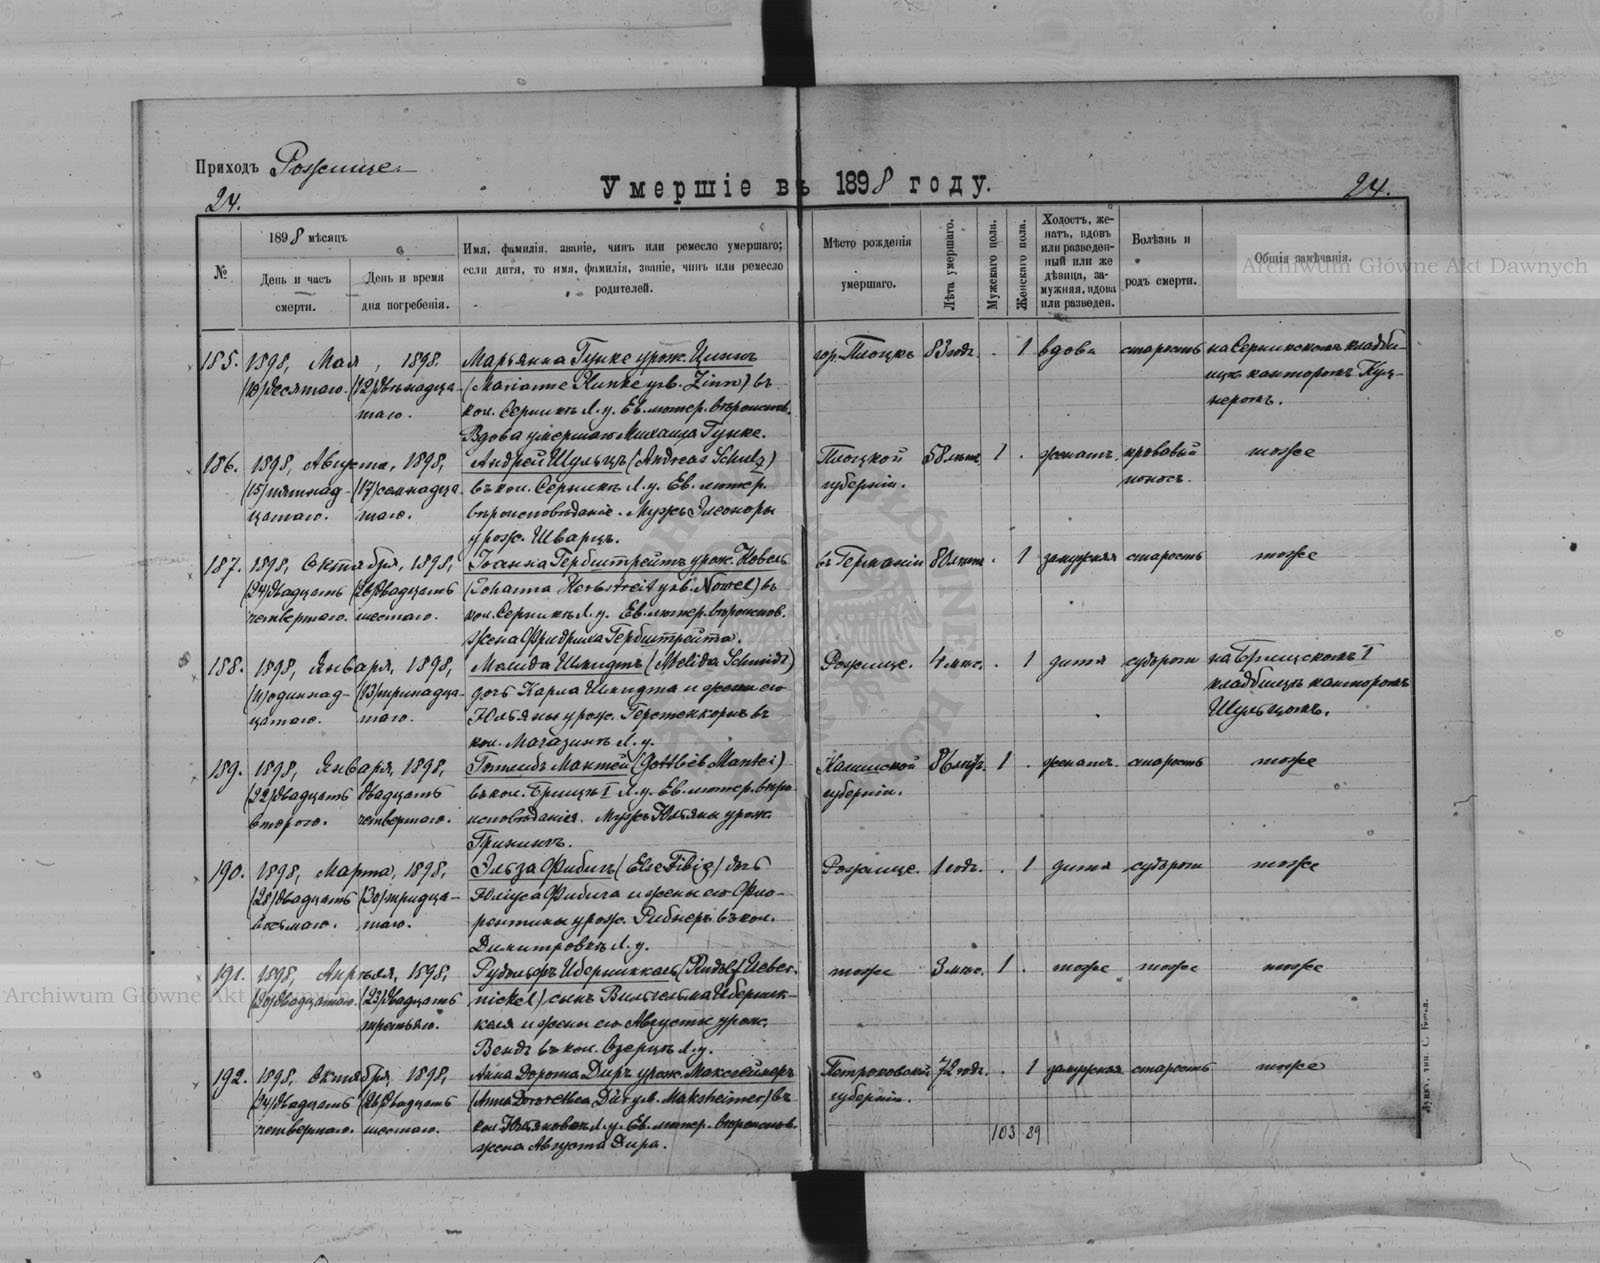 Приходъ Рожище
24.
Умершіе въ 1898 году.
24.
№
1898 мѣсяцъ
День и часъ смерти.
День и время дня погребенія.
Имя, фамилія, званіе, чинъ или ремесло умершаго;
если дитя, то имя, фамилія, званіе, чинъ или ремесло
родителей.
Мѣсто рожденія
умершаго.
Лѣта умершаго.
Мужскаго пола.
Женскаго пола.
Холостъ, же-
натъ, вдовъ
или разведен-
ный или же
дѣвица, за-
мужняя, вдова
или разведен.
Болѣзнь и
родъ смерти.
Общія замѣчанія.
Archiwum Główne Akt Dawnych
185. 1898, Мая, 1898. Марьянна Гунке урож. Циннъ гор. Плоцкъ 83 годъ. . 1 вдова старость на Серникскомъ кладби-
(10) десятаго. (12) двѣнадца- (Marianne Hunke geb. Zinn) въ щѣ канторомъ Куц-
таго. кол. Серникъ Л. у. Ев. лютер. вѣроиспов. неромъ.
Вдова умершаго Михаила Гунке.
186. 1898, Августа, 1898, Андрей Шульцъ (Andreas Schulz) Плоцкой 58 лѣтъ 1 . женатъ. кровавый тоже
(15) пятнад- (17) семнадца въ кол. Серникъ Л. у. Ев. лютер. губерніи. поносъ.
цатаго. таго. вѣроисповѣданіе. Мужъ Элеоноры
урож. Шварцъ.
187. 1898, Октября, 1898, Іоанна Гербштрейтъ урож. Новель въ Германіи 80 лѣтъ . 1 замужняя старость тоже
(24) двадцать (26) двадцать (Johanna Herbstreit geb. Nowel) въ
четвертаго. шестаго. кол. Серникъ Л. у. Ев. лютер. вѣроиспов.
Жена Фридриха Гербштрейта.
188. 1898, Января, 1898, Мелида Шмидтъ (Melida Schmidt) Рожище. 4 мѣс. . 1 дитя судороги на Брищскомъ I
(11) одиннад- (13) тринадца- дочь Карла Шмидта и жены его кладбищѣ канторомъ
цатаго. таго. Юльяны урож. Герстенкорнъ въ Шульцомъ.
кол. Магазинъ Л. у.
189. 1898, Января, 1898, Готлибъ Мантей (Gottlieb Mantei) Калишской 86 лѣтъ. 1 . женатъ. старость тоже
(22) двадцать двадцать въ кол. Брищъ I Л. у. Ев. лютер. вѣро- губерніи.
втораго. четвертаго. исповѣданія. Мужъ Юльяны урож.
190. 1898, Марта, 1898, Эльза Фибигъ (Else Fibig) дочь Рожище. 1 годъ. . 1 дитя судороги тоже
(28) двадцать (30) тридца- Юлiуса Фибига и жены его Фло-
восьмаго. таго. рентины урож. Рибнеръ въ кол.
Димитровкѣ Л. у.
191. 1898, Апрѣля, 1898, Рудольфъ Иберниккель (Rudolf Ueber- тоже 3 мѣс. 1 . тоже тоже тоже
(20) двадцатаго. (23) двадцать nickel) сынъ Вильгельма Иберник-
третьяго. келя и жены его Августы урож.
Вендъ въ кол. Озерцѣ Л. у.
192. 1898, Октября, 1898, Анна Доротa Диръ урож. Максгеймеръ Петроковской 72 годъ. . 1 замужняя старость тоже
(24) двадцать (26) двадцать (Anna Dorothea Där geb. Maksheimer) въ губерніи.
четвертаго. шестаго. кол. Юльяновкѣ Л. у. Ев. лютер. вѣроиспов.
жена Августа Дира.
103 89
Archiwum Główne Akt Dawnych